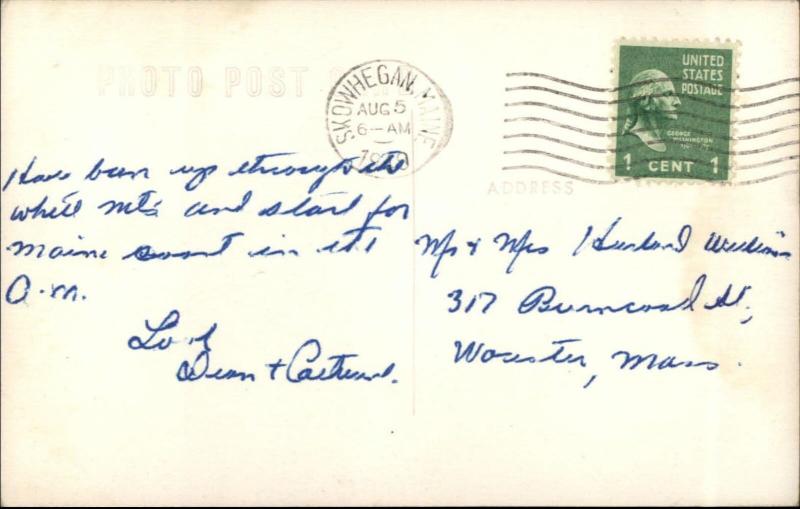 PHOTO POST
SKOWHEGAN, MAINE
AUG 5
6-AM
UNITED
STATES
POSTAGE
GEORGE
WASHINGTON
1 CENT 1
ADDRESS
Have been up through the
white Mts and start for
Maine coast in the
a.m.
Love
Dean +
Mr & Mrs
317 Burncoat St,
Worcester, Mass.